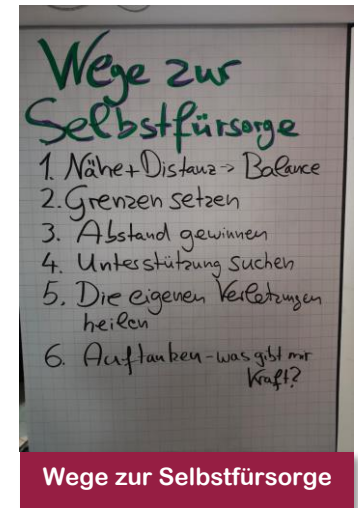 Wege zur
Selbstfürsorge
1. Nähe+Distanz → Balance
2. Grenzen setzen
3. Abstand gewinnen
4. Unterstützung suchen
5. Die eigenen Verletzungen
heilen
6. Auftanken - was gibt mir
Kraft?
Wege zur Selbstfürsorge